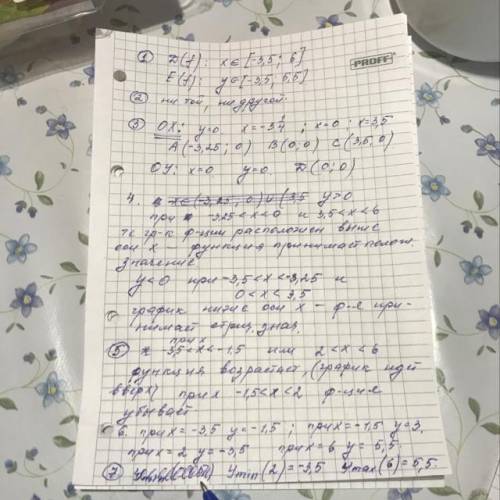 ① D(f): x∈[-3,5; 6]
PROFF
E(f): y∈[-3,5; 5,5]
② ни той, ни другой.
③ OX: y=0 x=-3,4; x=0; x=3,5
A(-3,25; 0) B(0; 0) C(3,5; 0)
OY: x=0 y=0 D(0; 0)
4. y>0
при -3,25<x<0 и 3,5<x<6
тк гр-к ф-ции расположен выше
оси x функция принимает полож.
значение
y<0 при -3,5<x<-3,25 и
0<x<3,5
график ниже оси x - ф-я при-
нимает отриц. знач.
⑤ при x -3,5<x<-1,5 или 2<x<6
функция возрастает, (график идёт
вверх) при x -1,5<x<2 ф-ция
убывает
6. при x=-3,5 y=-1,5; при x=-1,5 y=3,
при x=2 y=-3,5 при x=6 y=5,5.
⑦ y min(2)=-3,5 y max(6)=5,5.